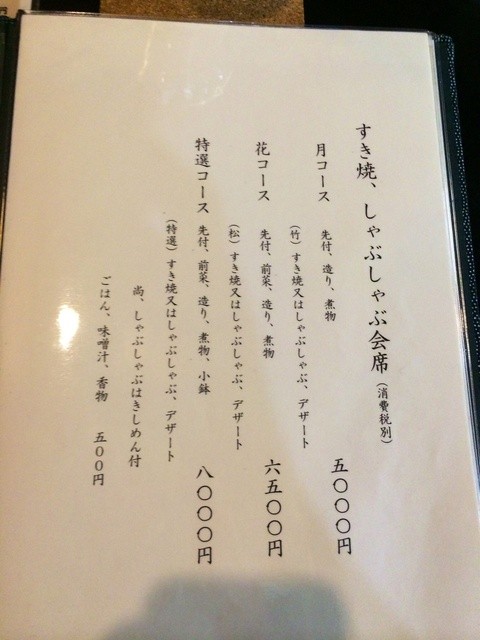 すき焼、しゃぶしゃぶ会席(消費税別)
月コース 先付、造り、煮物 五〇〇〇円
(竹)すき焼又はしゃぶしゃぶ、デザート
花コース 先付、前菜、造り、煮物 六五〇〇円
(松)すき焼又はしゃぶしゃぶ、デザート
特選コース 先付、前菜、造り、煮物、小鉢 八〇〇〇円
(特選)すき焼又はしゃぶしゃぶ、デザート
尚、しゃぶしゃぶはきしめん付
ごはん、味噌汁、香物 五００円